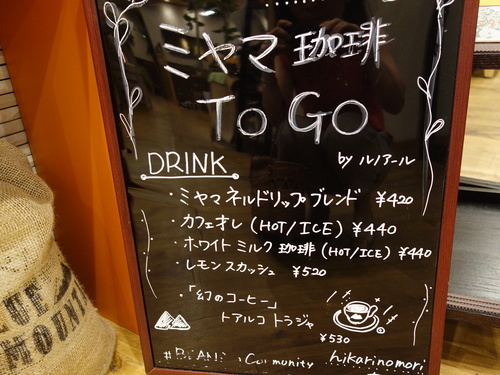 ミヤマ 珈琲
TO GO
DRINK
by ルノアール
・ミヤマ ネルドリップ ブレンド ¥420
・カフェオレ (HOT/ICE) ¥440
・ホワイト ミルク 珈琲 (HOT/ICE) ¥440
・レモン スカッシュ ¥520
・「幻のコーヒー」
トアルコ トラジャ
¥530
# Community hikarinomori
MOUNT